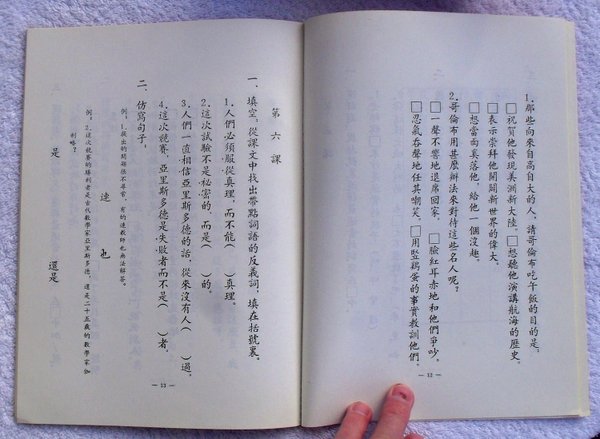 1.那些向來自高自大的人，請哥倫布吃午飯的目的是：
□祝賀他發現美洲新大陸。□想聽他演講航海的歷史。
□表示崇拜他開闢新世界的偉大。
□想當面奚落他，給他一個沒趣。
2.哥倫布用甚麼辦法來對待這些名人呢？
□一聲不響地退席回家。□臉紅耳赤地和他們爭吵。
□忍氣吞聲地任其嘲笑。□用豎鷄蛋的事實教訓他們。
— 12 —
第六課
一、填空。從課文中找出帶點詞語的反義詞，填在括號裏。
1.人們必須服從真理，而不能（　）真理。
2.這次試驗不是秘密的，而是（　）的。
3.人們一直相信亞里斯多德的話，從來沒有人（　）過。
4.這次競賽，亞里斯多德是失敗者而不是（　）者。
二、仿寫句子。
例：1.提出的問題很不尋常，有的連教師也無法解答。
連　也
例：2.這次競賽的勝利者是古代數學家亞里斯多德，還是二十五歲的數學家伽
利略？
是　還是
— 13 —